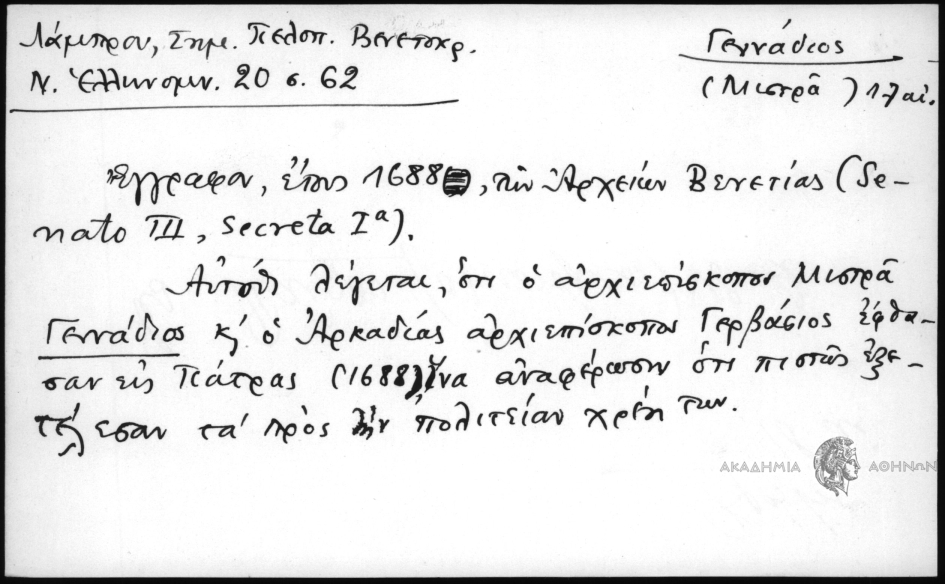 Λάμπρου, Σημ. Πελοπ. Βενετοκρ.
Ν. Ἑλληνομν. 20 σ. 62
Γεννάδιος
(Μιστρᾶ) 17 αἰ.
Ἔγγραφον, ἔτους 1688, τῶν Ἀρχείων Βενετίας (Se-
nato III, Secreta Iª).
Αὐτόθι λέγεται, ὅτι ὁ ἀρχιεπίσκοπος Μιστρᾶ
Γεννάδιος κ̓ ὁ Ἀρκαδίας ἀρχιεπίσκοπος Γερβάσιος ἔφθα-
σαν εἰς Πάτρας (1688) ἵνα ἀναφέρωσιν ὅτι πιστῶς ἐξε-
τέλεσαν τὰ πρὸς τὴν πολιτείαν χρέη των.
ΑΚΑΔΗΜΙΑ ΑΘΗΝΩΝ